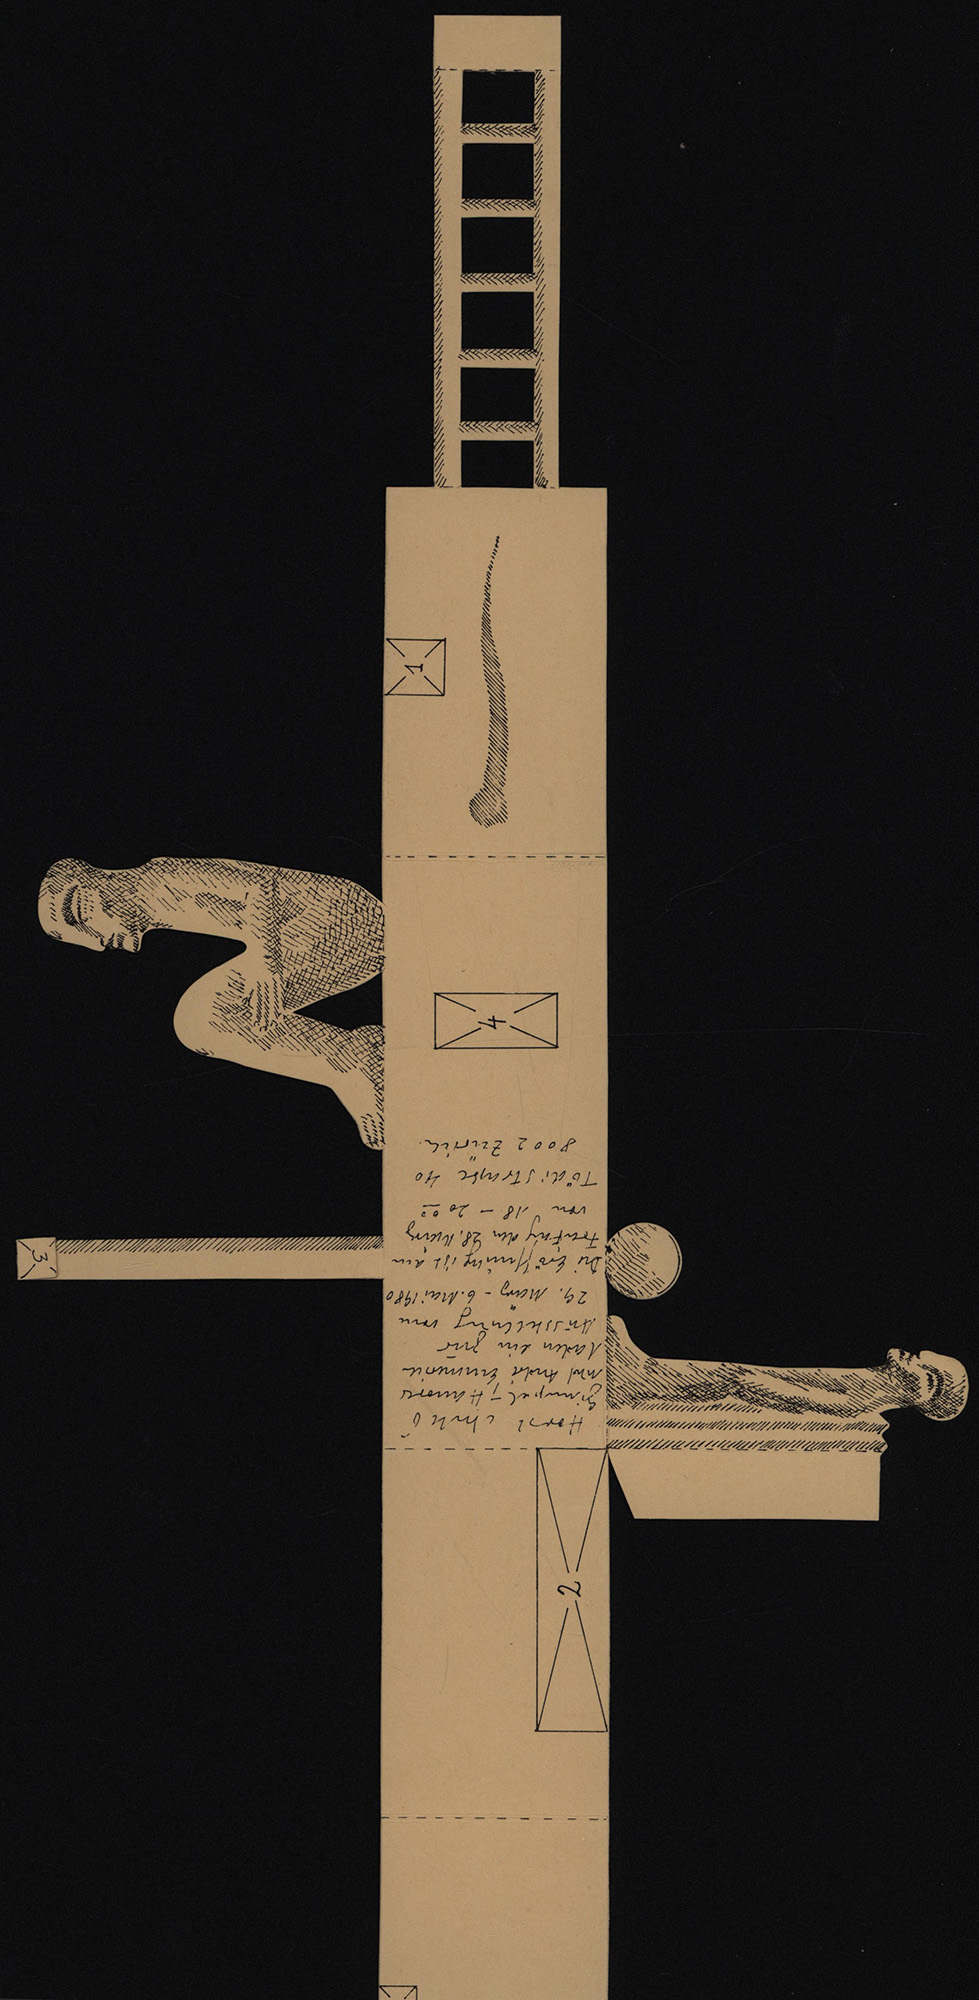 Gimpel + Hanover
und André Emmerich
laden ein zur
Ausstellung vom
29. März - 6. Mai 1980
Die Eröffnung ist am
Freitag den 28. März
von 18 - 20 00
Tödistrasse 40
8002 Zürich.
1
4
3
2